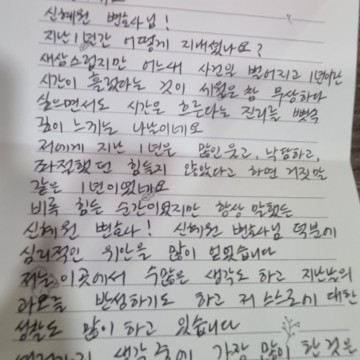 신혜원 변호사님!
지난 1년간 어떻게 지내셨나요?
새삼스럽지만 어느새 사건을 벌어지고 1년이란
시간이 흘렀다는 것이 세월은 참 무상하다
싶으면서도 시간은 흐른다는 진리를 뼛속
깊이 느끼는 나날이네요
저에게 지난 1년은 많이 웃고, 낙담하고,
좌절했던 힘들지 않았다고 하면 거짓말
같은 1년이였네요
비록 힘든 순간이였지만 항상 말했듯
신혜원 변호사! 신혜원 변호사님 덕분에
심리적인 위안을 많이 얻었습니다
저는 이곳에서 수많은 생각도 하고 지난날의
과오를 반성하기도 하고 저 스스로에 대한
성찰도 많이 하고 있습니다
생각 중에 가장 많 한 것은